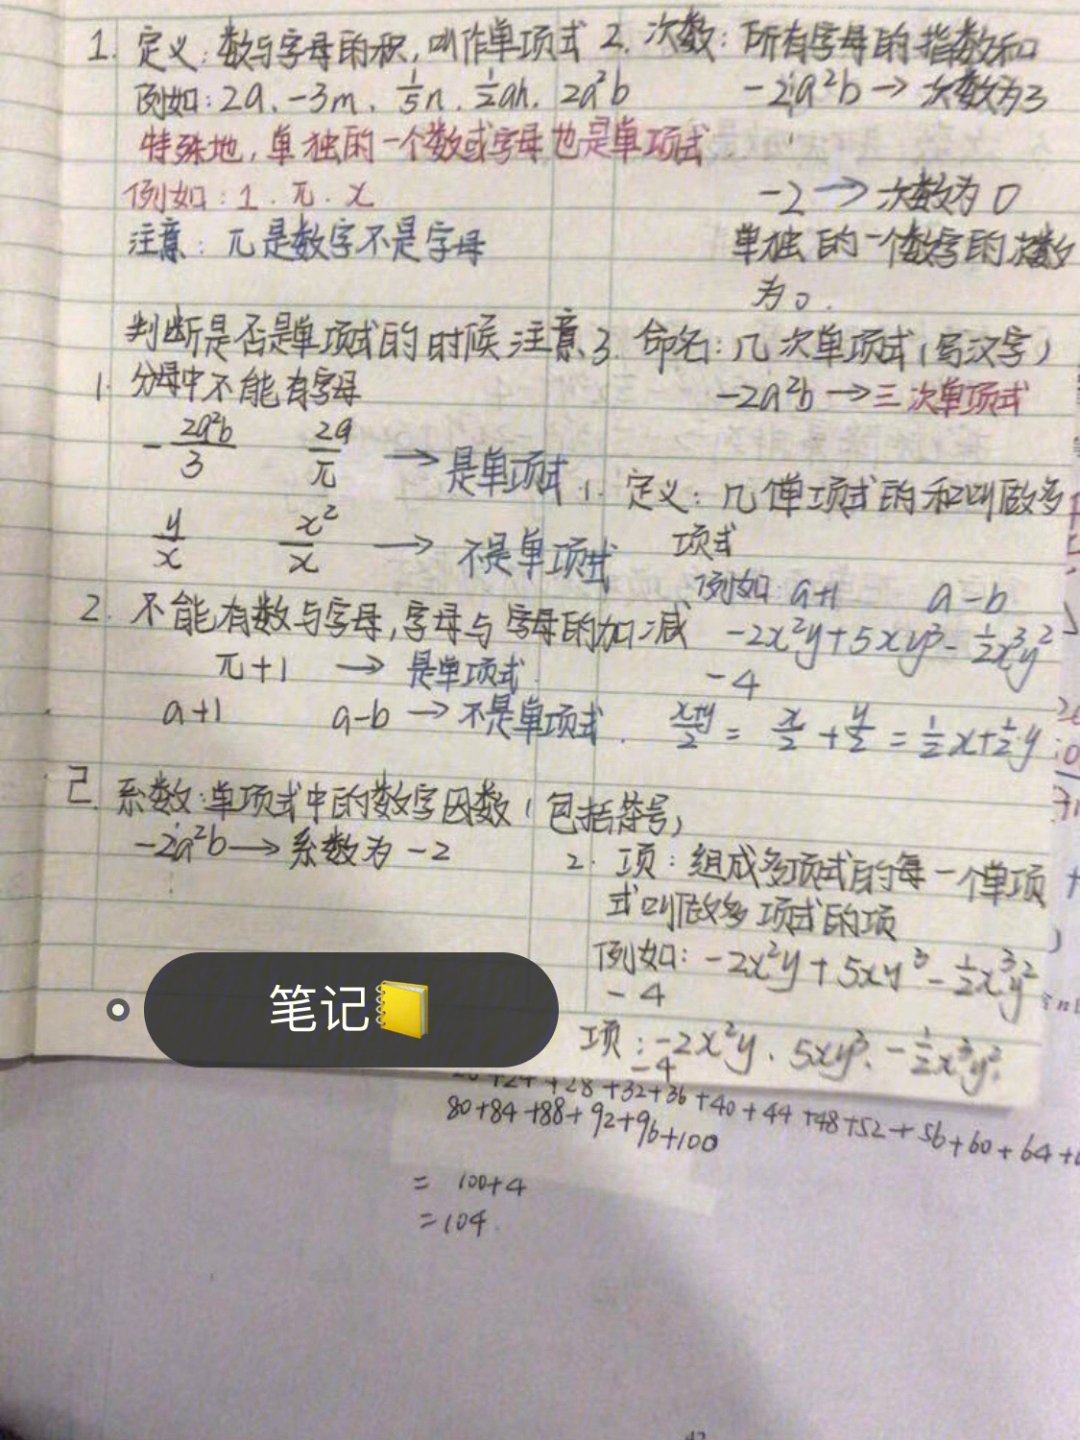 1. 定义：数与字母的积，叫作单项式
例如：2a、-3m、1/5n、1/2ah、2a²b
特殊地，单独的一个数或字母也是单项式
例如：1、π、x
注意：π是数字不是字母
判断是否是单项式的时候注意
1 分母中不能有字母
-2a²b/3 2a/π → 是单项式
y/x x²/x → 不是单项式
2. 不能有数与字母，字母与字母的加减
π+1 → 是单项式
a+1 a-b → 不是单项式
2. 系数：单项式中的数字因数（包括符号）
-2a²b → 系数为-2
2. 次数：所有字母的指数和
-2a²b → 次数为3
-2 → 次数为0
单独的一个数字的次数
为0.
3. 命名：几次单项式（写汉字）
-2a²b → 三次单项式
1. 定义：几个单项式的和叫做多
项式
例如 a+1 a-b
-2x²y+5xy³-1/2x³y²
-4
x+y/2 = x/2 + y/2 = 1/2x+1/2y
2. 项：组成多项式的每一个单项
式叫做多项式的项
例如：-2x²y+5xy³-1/2x³y²
-4
项：-2x²y、5xy³、-1/2x³y²、
-4
笔记
+24+28+32+36+40+44+48+52+56+60+64+
80+84+88+92+96+100
= 100+4
=104